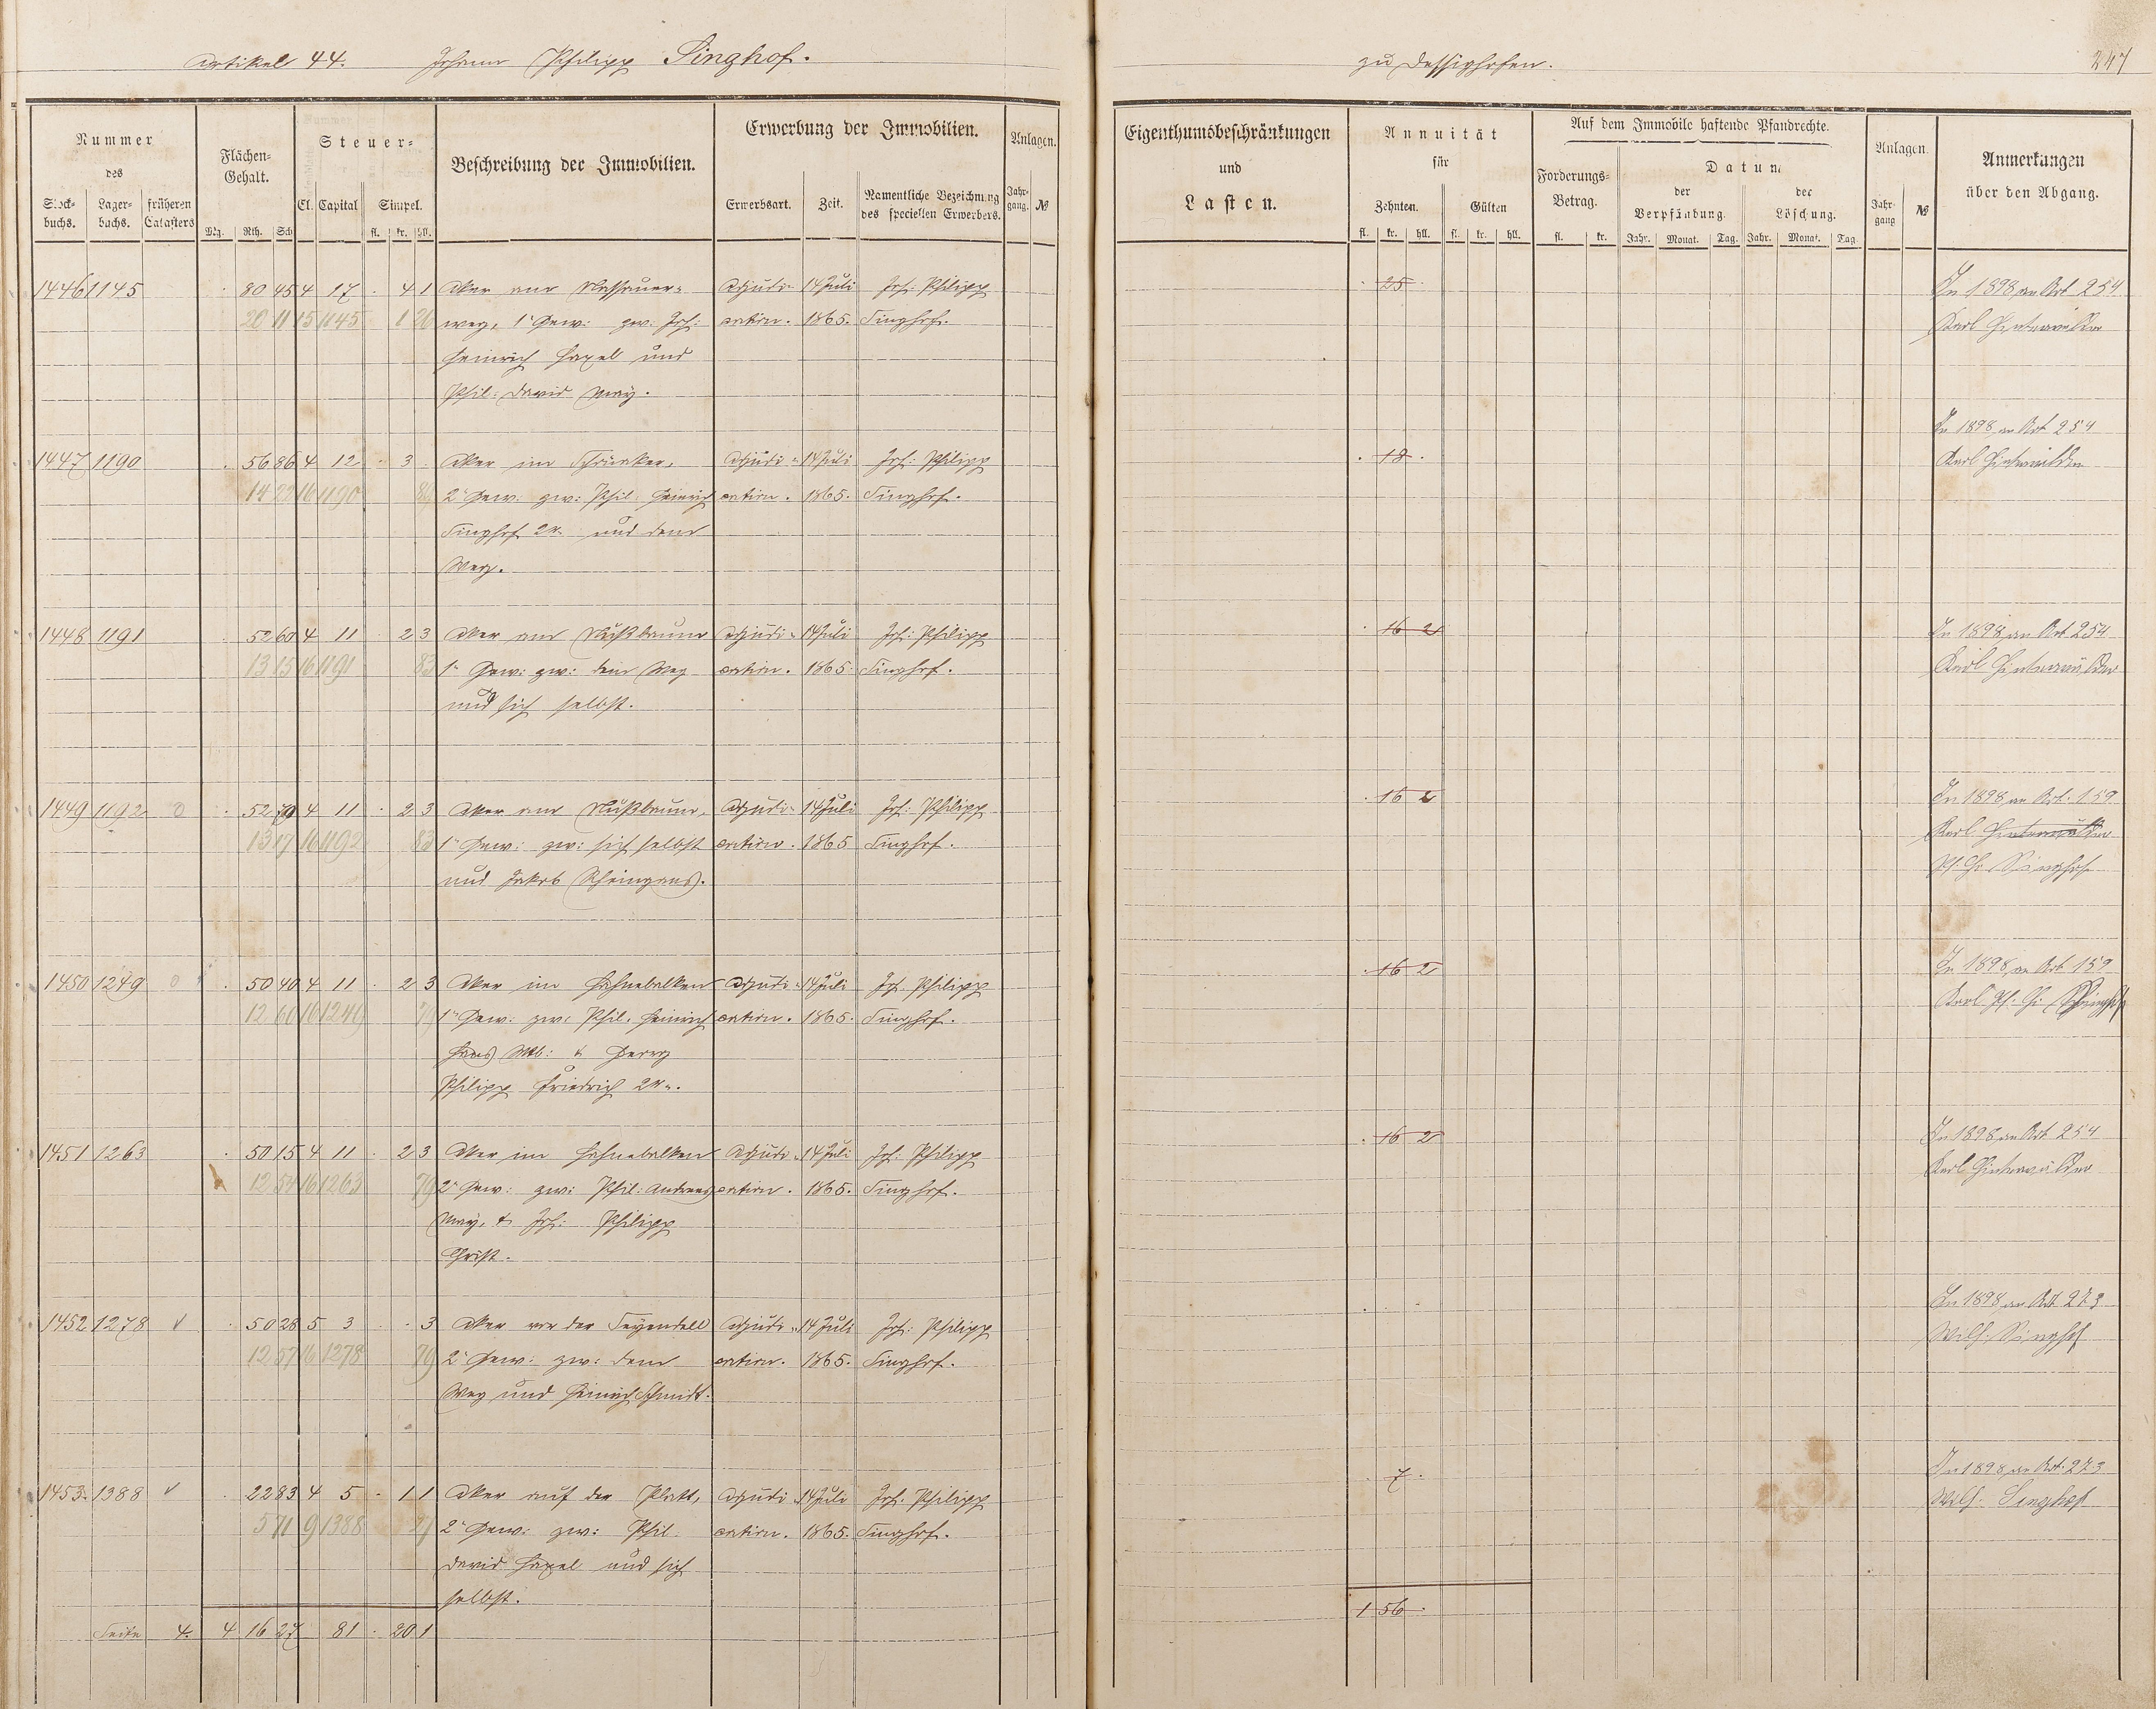 Artikel 44. Johann Philipp Singhof.
zu Dessighofen.
247
Nummer
des
Stock-
buchs.
Lager-
buchs.
früheren
Catasters
Flächen-
Gehalt.
Mg. Rth. Sch
Steuer-
Cl. Capital Simpel.
fl. kr. hll.
Beschreibung der Immobilien.
Erwerbung der Immobilien.
Erwerbsart. Zeit. Namentliche Bezeichnung
des speciellen Erwerbers.
Anlagen.
Jahr-
gang. №
Eigenthumsbeschränkungen
und
Lasten.
Annuität
für
Zehnten. Gülten
fl. kr. hll. fl. kr. hll.
Auf dem Immobile haftende Pfandrechte.
Forderungs-
Betrag.
fl. kr.
Datum
der
Verpfändung.
der
Löschung.
Jahr. Monat. Tag. Jahr. Monat. Tag.
Anlagen.
Jahr-
gang №
Anmerkungen
über den Abgang.
1446 1145 . 80 45 4 17 . 4 1 Aker am Nassauer- Adjudi- 14 Juli Joh: Philipp . 25 . In 1898 an Art 254
20 11 15 1145 1 26 weg, 1r Gew: zw: Joh: cation. 1865. Singhof. Karl Hinterwälder
Heinrich Hapel und
Phil: David May.
In 1898 an Art 254
1447 1190 . 56 86 4 12 . 3 . Aker im Adjudi- 14 Juli Joh: Philipp . 18 . Karl Hinterwälder
14 22 16 1190 2r Gew: zw: Phil: Heinrich cation. 1865. Singhof.
Singhof 2r und dem
Weg.
1448 1191 . 52 60 4 11 . 2 3 Aker am Nußbaum Adjudi- 14 Juli Joh: Philipp . 16 2 In 1898 an Art 254
13 15 16 1191 83 1r Gew: zw: dem Weg cation. 1865. Singhof. Karl Hinterwälder
und sich selbst.
1449 1192 0 . 52 70 4 11 . 2 3 Aker am Nußbaum, Adjudi- 14 Juli Joh: Philipp . 16 2 In 1898 an Art. 159
13 17 16 1192 83 1r Gew: zw: sich selbst cation. 1865 Singhof. Karl Hinterwälder
und Jakob Rheingans. Ph. Hr. Singhof
1450 1249 0 . 50 40 4 11 . 2 3 Aker im Hahnebalken Adjudi- 14 Juli Joh. Philipp . 16 2 In 1898 an Art 159
12 60 16 1249 79 1r Gew: zw: Phil. Heinrich cation. 1865. Singhof. Karl Ph. Hr. Singhof
Hans Wtb: & Georg
Philipp Friedrich 2r.
1451 1263 . 50 15 4 11 . 2 3 Aker im Hahnebalken Adjudi- 14 Juli Joh: Philipp . 16 2 In 1898 an Art 254
12 54 16 1263 79 2r Gew: zw: Phil: Andreas cation. 1865. Singhof. Karl Hinterwälder
May, & Joh: Philipp
Christ.
1452 1278 v . 50 28 5 3 . . 3 Aker vor der Adjudi- 14 Juli Joh: Philipp In 1898 an Art 273
12 57 16 1278 79 2r Gew: zw: dem cation. 1865. Singhof. Wilh. Singhof
Weg und Heinrich Schmidt.
1453. 1388 v . 22 83 4 5 . 1 1 Aker auf der Platt, Adjudi- 14 Juli Joh. Philipp . 7 . In 1898 an Art. 273
5 71 9 1388 27 2r Gew: zw: Phil. cation. 1865. Singhof. Wilh. Singhof
David Hapel und sich
selbst.
Seite 4. 4 16 27 81 . 20 1 1 56 .